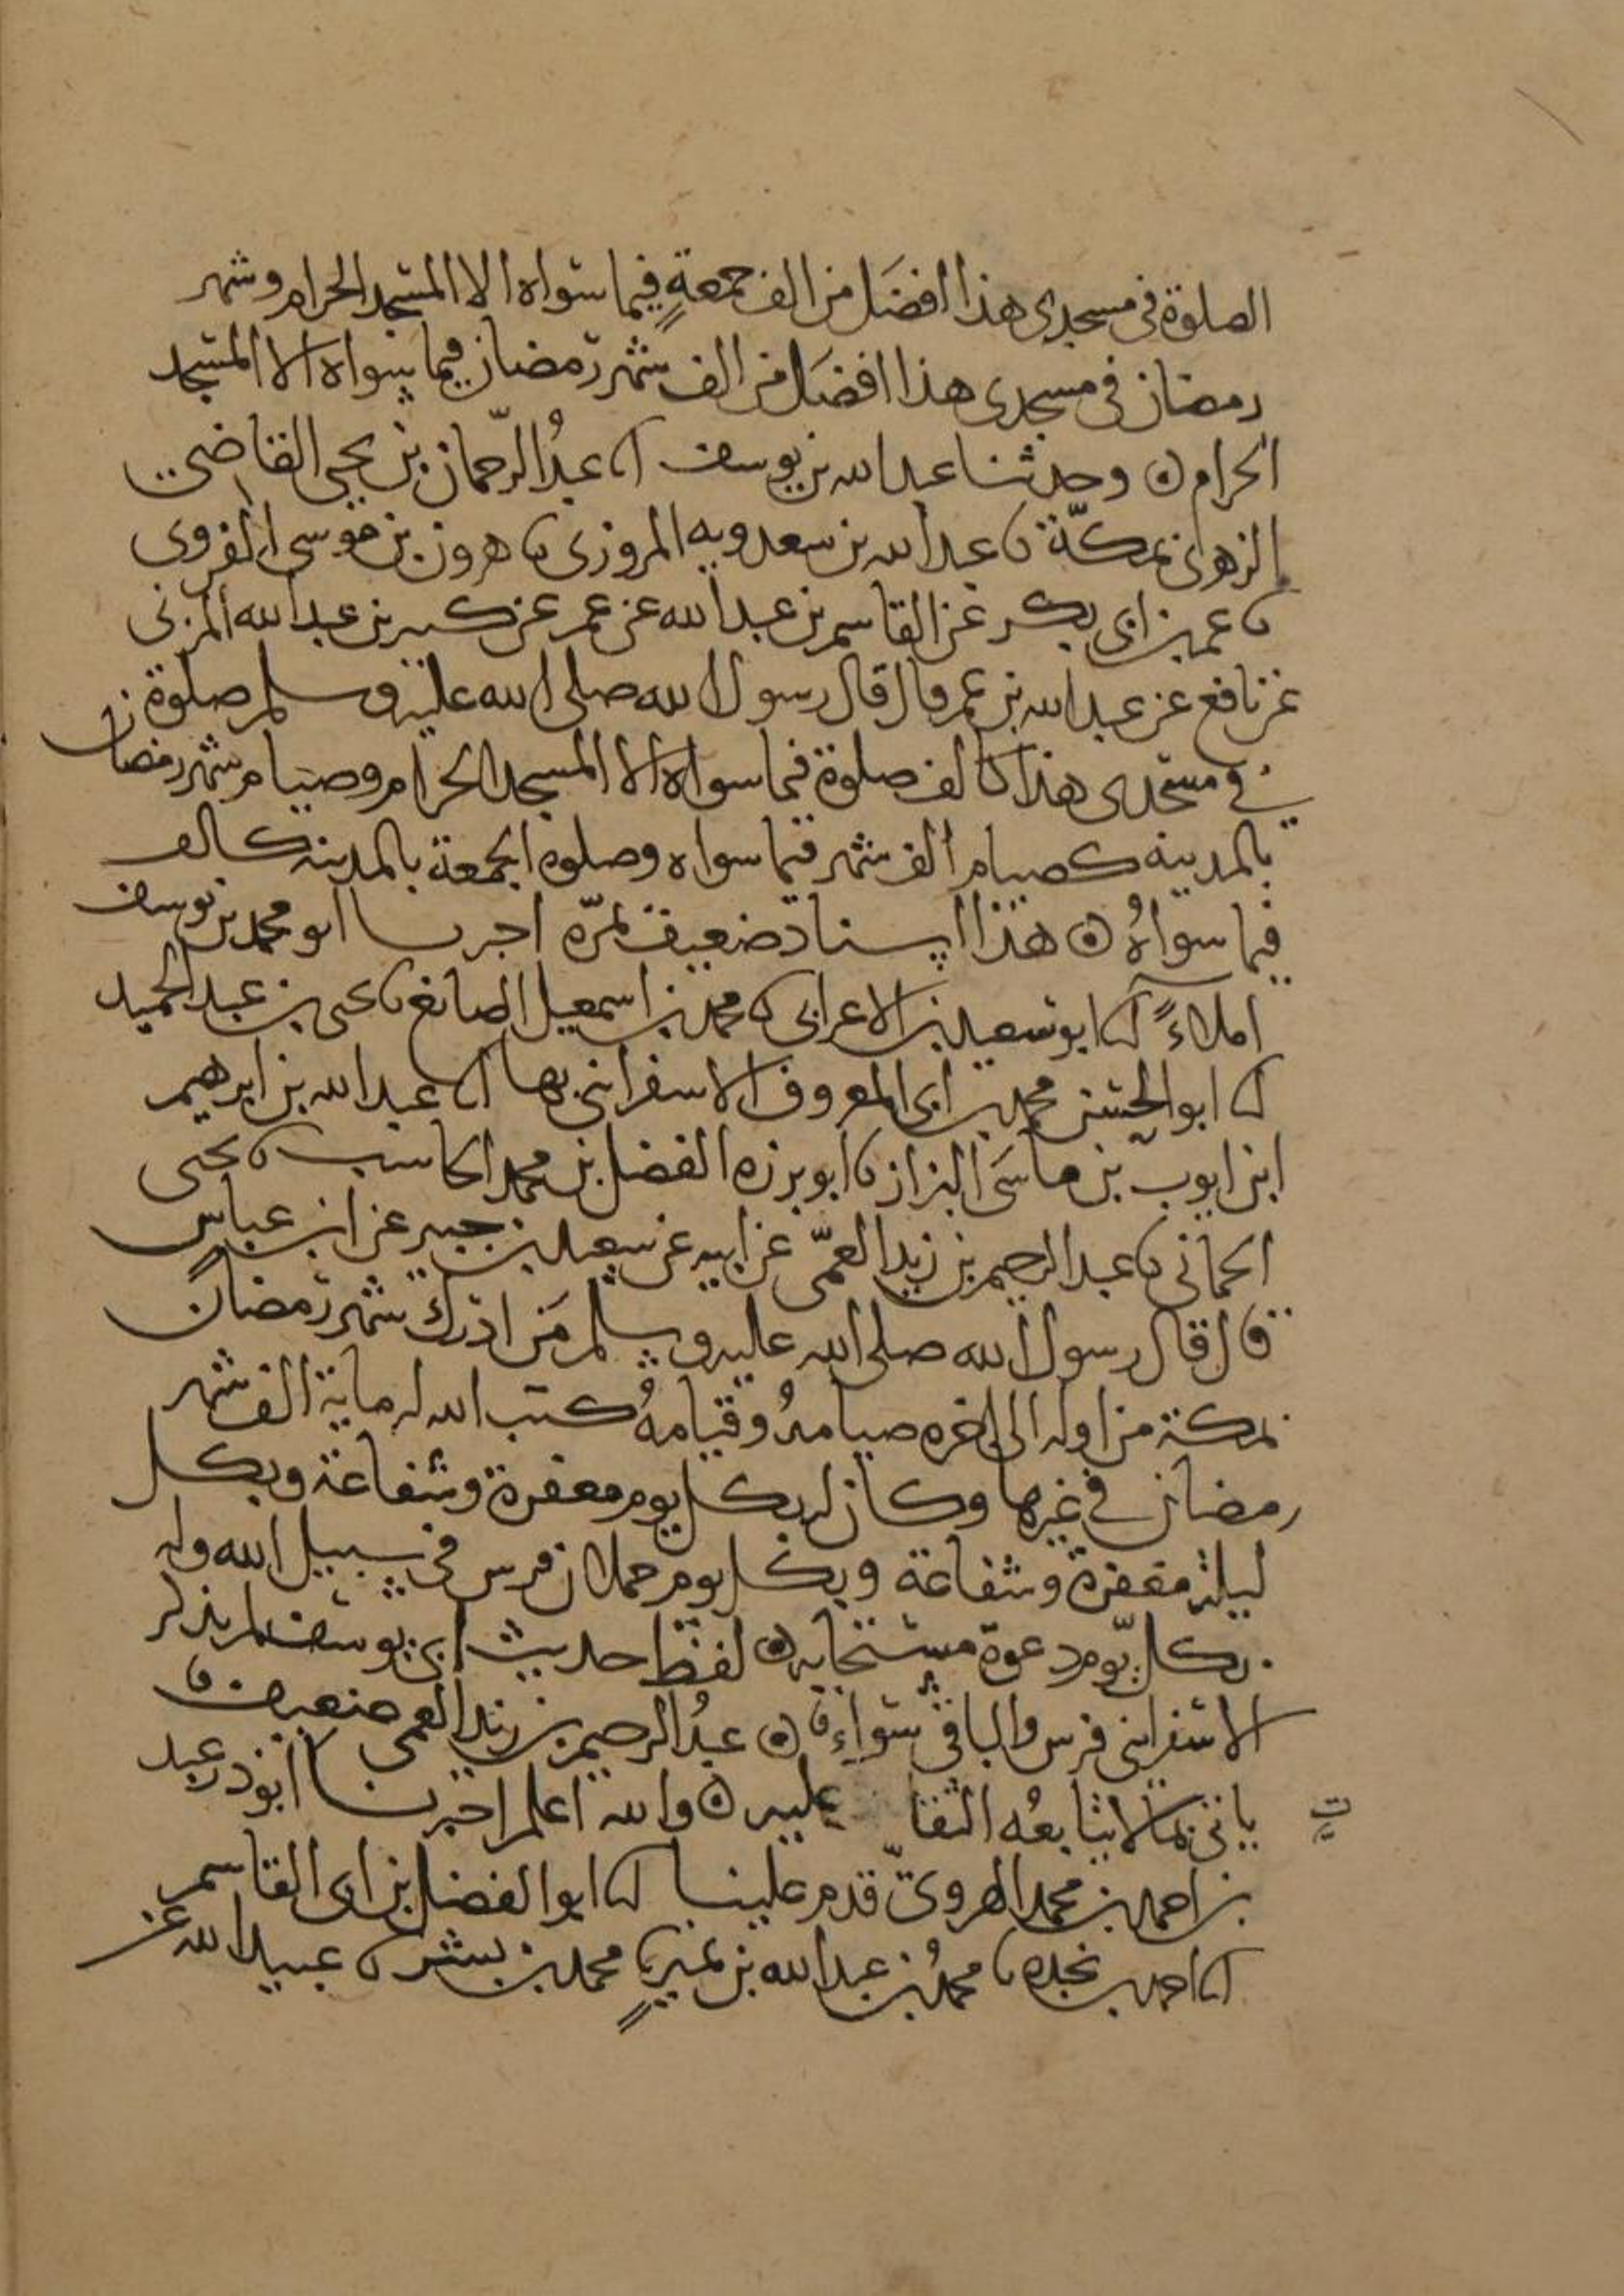 الصلوة في مسجدي هذا افضَل من الف جمعةٍ فيما سواه الا المسجد الحرام وشهر
رمضان في مسجدي هذا افضَل من الف شهر رمضان فيما سواه الا المسجد
الحرام ۞ وحدثنا عبد الله بن يوسف انا عبدُ الرّحمان بن يحيى القاضي
الزهري بمكّة نا عبد الله بن سعدويه المروزي نا هرون بن موسى الفروي
نا عمر بن ابي بكر عن القاسم بن عبد الله عن عمر عن كسير بن عبد الله المزني
عن نافع عن عبد الله بن عمر قال قال رسول الله صلى الله عليه وسلم صلوة
في مسجدي هذا كالف صلوة فيما سواه الا المسجد الحرام وصيام شهر رمضان
بالمدينه كصيام الف شهر فيما سواه وصلوه الجمعة بالمدينه كالف
فيما سواهُ ۞ هذا اسناد ضعيف بمرّه اخبرنا ابو محمد بن يوسف
املاءً انا ابو سعيد بن الاعرابي نا محمد بن اسمعيل الصائغ نا يحيى بن عبد الحميد
انا ابو الحسن محمد بن ابي المعروف الاسفرايني بها انا عبد الله بن ابرهيم
ابن ايوب بن ماسَى البزاز نا ابو برزه الفضل بن محمد الحاسب نا يحيى
الحماني نا عبد الرحيم بن زيد العمّي عن ابيه عن سعيد بن جبير عن ابن عباس
قال قال رسول الله صلى الله عليه وسلم مَن ادرك شهر رمضان
بمكة من اوله الى اخره صيامهُ وقيامهُ كتب الله له ماية الف شهر
رمضان في غيرها وكان له بكل يوم مغفرة وشفاعة وبكل
ليلة مغفرة وشفاعة وبكل يوم حملان فرس في سبيل الله وله
بكل يوم دعوة مستجابه ۞ لفظ حديث ابن يوسف لم يذكر
الاسفرايني فرس والباقي سواء ۞ عبدُ الرحيم بن زيد العمي ضعيف
ياتي بما لا يتابعُه الثقا عليه ۞ والله اعلم اخبرنا ابو ذر عبد
ت
بن احمد بن محمد الهرويّ قدم علينا انا ابو الفضل بن ابي القاسم
انا احمد بن نجده نا محمدُ بن عبد الله بن نميرٍ نا محمد بن بشر نا عبيد الله عن